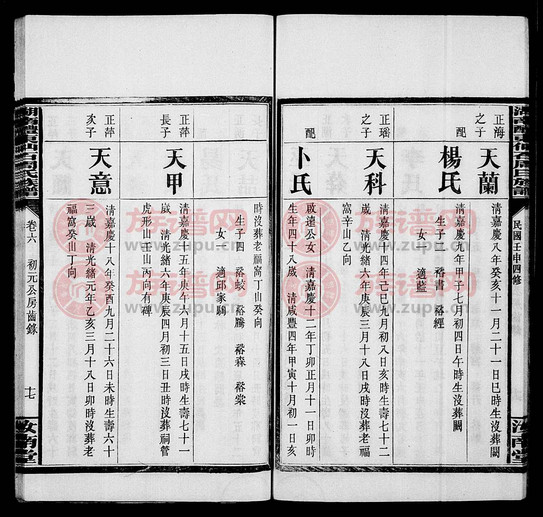 民國壬申四修
汝南堂
正海之子
天蘭
清嘉慶八年癸亥十一月二十一日巳時生沒葬闕
配
楊氏
清嘉慶九年甲子七月初四日午時生沒葬闕
生子二 裕書 裕經
女一 適藍
正瑶之子
天科
清嘉慶十四年己巳九月初八日亥時生壽七十二
歲 清光緒六年庚辰三月十八日戌時沒葬老福
窩辛山乙向
配
卜氏
啟遠公女 清嘉慶十二年丁卯正月十一日卯時
生年四十八歲 清咸豐四年甲寅十月初一日亥
時沒葬老福窩丁山癸向
生子四 裕蛟 裕騰 裕森 裕棠
女一 適邱家駒
正萍長子
天甲
清嘉慶十五年庚午六月十五日戌時生壽七十一
歲 清光緒六年庚辰四月初三日丑時沒葬祠管
虎形山壬山丙向有碑
正萍次子
天意
清嘉慶十八年癸酉九月二十六日未時生壽六十
三歲 清光緒元年乙亥三月十八日卯時沒葬老
福窩癸山丁向
卷六 初元公房齒錄
十七
汝南堂
族谱网
www.zupu.cn